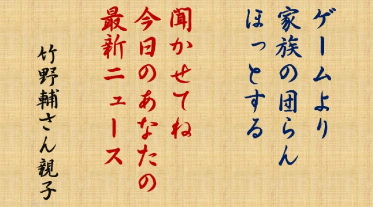 ゲームより
家族の団らん
ほっとする
聞かせてね
今日のあなたの
最新ニュース
竹野輔さん親子